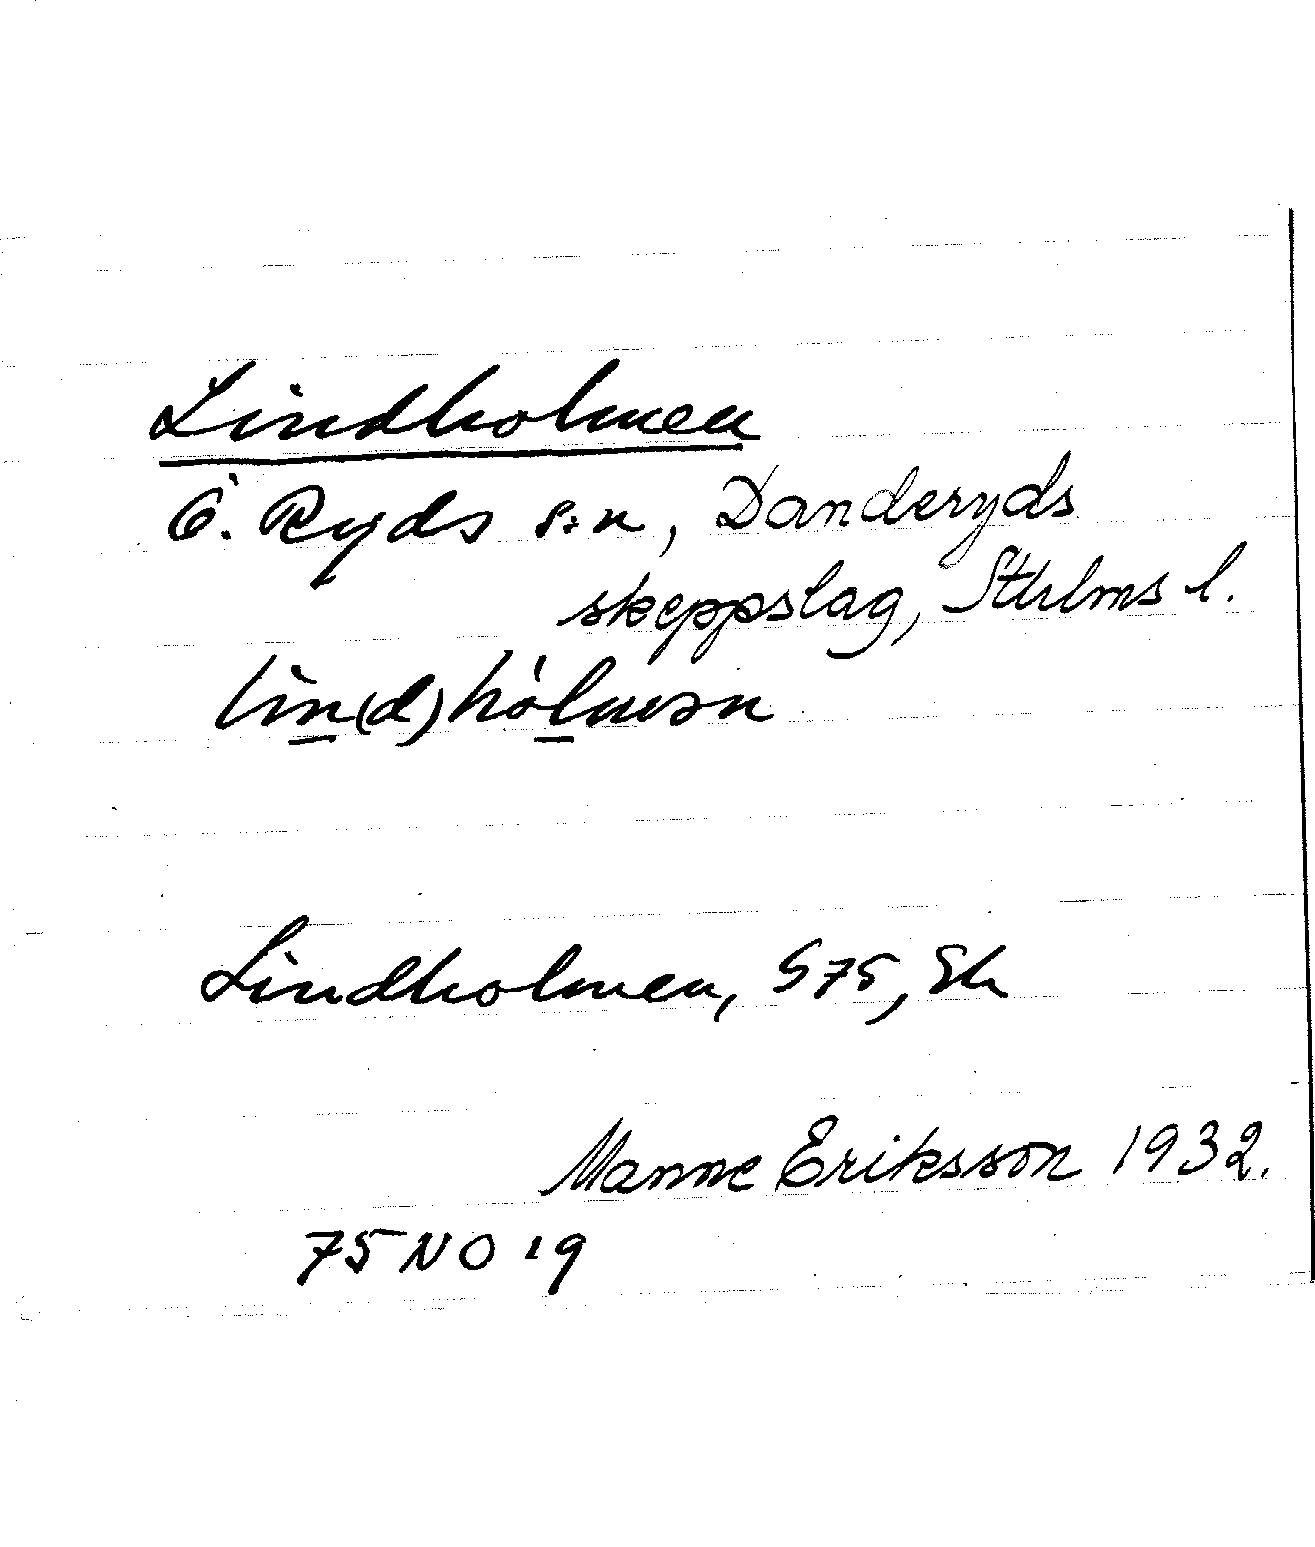 Lindholmen
Ö. Ryds s:n, Danderyds
skeppslag, Sthlms l.
lin(d)hólmən
Lindholmen, S75, Sh
Manne Eriksson 1932.
75 NO 19